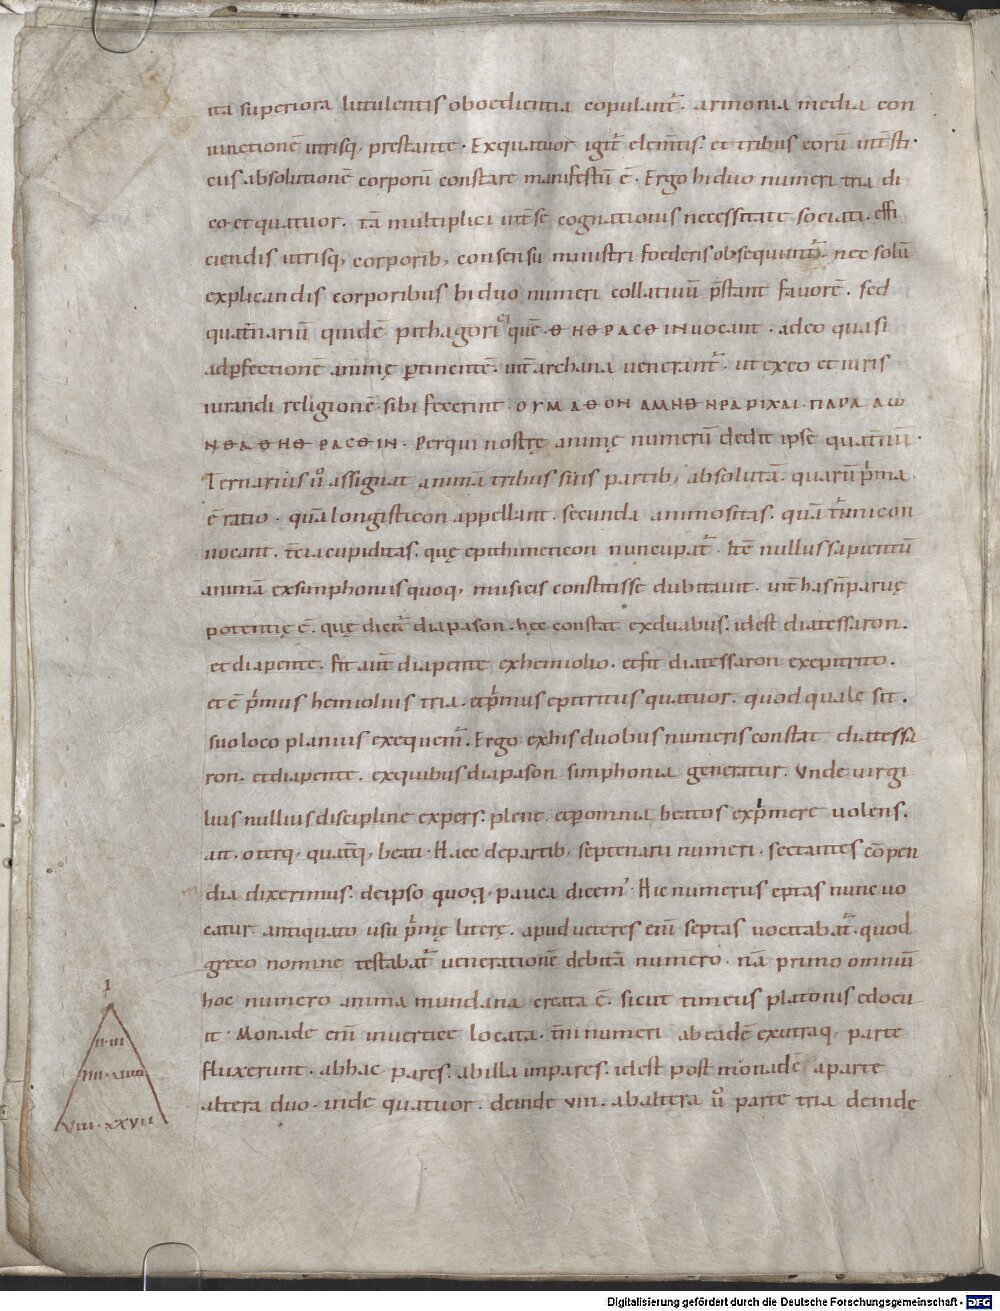 ita superiora lutulentis oboedientia copulant᷑. armonia media con
iunctionē utrisq; prestante. Exquatuor igit᷑ elem̄tis. et tribus eorū int̄sti·
ciis absolutionē corporū constare manifestū ē. Ergo hi duo numeri tria di
co et quatuor. tā multiplici int̄ se cognationis necessitate sociati. effi
ciendis utrisq; corporib; consensu ministri foederis obsequunt᷑. nec solū
explicandis corporibus hi duo numeri collativū p̄stant favorē. sed
quat̄narium quidē pithagorici quē ΘΗΘΡΑCΘ ΙΝ vocant. adeo quasi
adꝑfectionē animę ꝑtinentē. int̄ archana venerant᷑. ut exeo et iuris
iurandi religionē sibi fecerint. ΟΥΜ ΑΘΟΝ ΑΜΗΘΗΡΑΡΙΧΑΙ. ΠΑΡΑ ΑΩ
ΗΘΑΘΗΘ ΡΑCΘΙΝ. Perqui nostrę animę numerū dedit ipse quat̄nū.
Ternarius ů assignat animā tribus suis partib; absolutā. quarū p̍ma
ē ratio. quā longisticon appellant. secunda animositas. quā t̍micon
vocant. t̄cia cupiditas. quę epithimeticon nuncupat᷑. Itē nullus sapientū
animā exsimphoniis quoq; musicis constitisse dubitavit. int̄ has n̄ parvę
potentię ē. quę dicit᷑ diapason. hęc constat exduabus. idest diatessaron.
et diapente. fit aut̄ diapente exhemiolio. et fit diatessaron exepitrito.
et ē p̍mus hemiolius tria. et p̍mus epitritus quatuor. quod quale sit.
suo loco planius exequem᷑. Ergo exhis duobus numeris constat diatessa
ron. et diapente. exquibus diapason simphonia generatur. Unde virgi
lius nullius discipline expers. plene. et ꝑ omnia beatos exp̍mere volens.
ait. o terq; quat̄q; beati. Haec departib; septenarii numeri. sectantes cōpen
dia dixerimus. deipso quoq; pauca dicem᷒. Hic numerus eptas nunc vo
catur. antiquato usu p̍mę literę. apud veteres enī septas vocitabat᷑. quod
greco nomine testabat᷑ venerationē debitā numero. nā primo omniū
hoc numero anima mundana creata ē. sicut timeus platonis edocu
it. Monade enī invertice locata. t̄ni numeri abeadē exutraq; parte
fluxerunt. abhac pares. abilla impares. idest post monadē aparte
altera duo. inde quatuor. deinde VIII. abaltera ů parte tria deinde
I
II·III
IIII·VIIII
VIII·XXVII
Digitalisierung gefördert durch die Deutsche Forschungsgemeinschaft - DFG